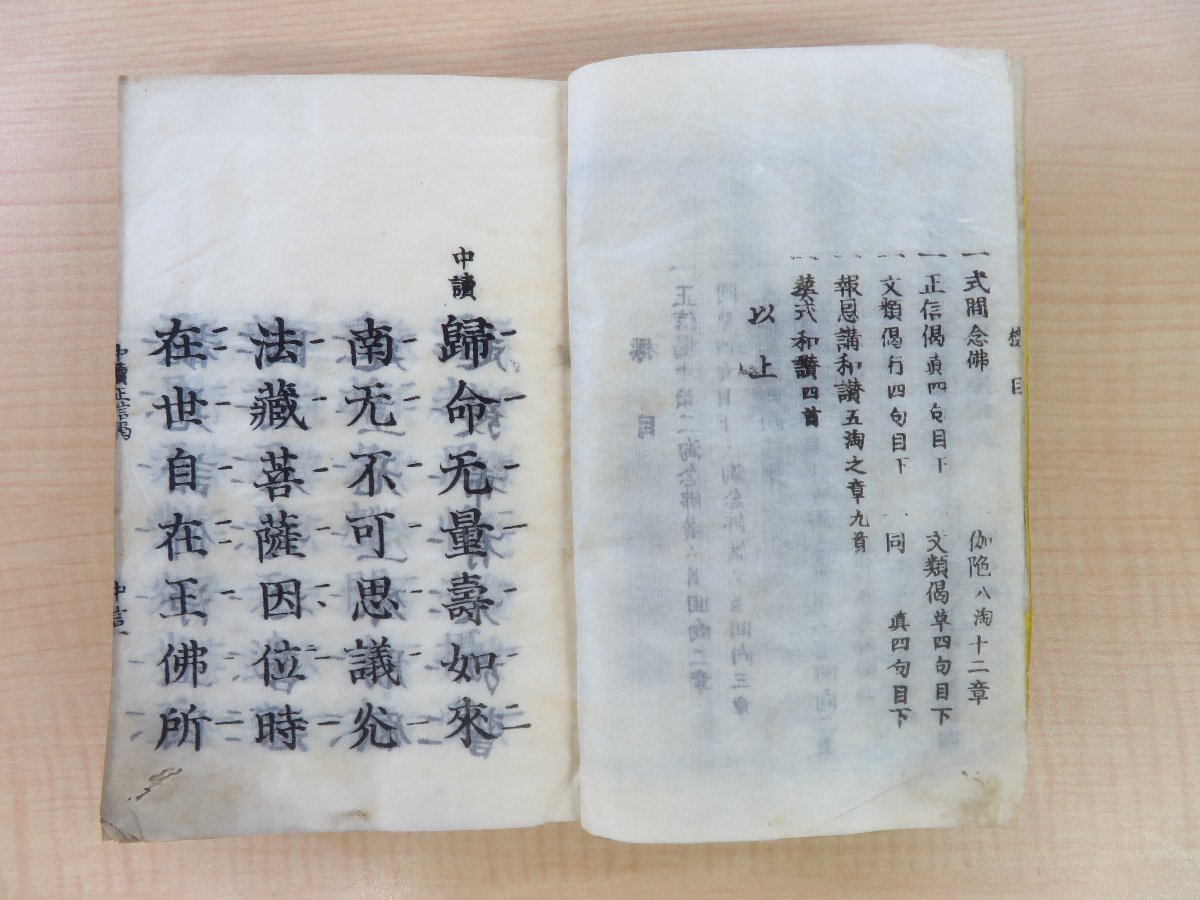 標目
一 式間念佛 伽陀八淘十二章
一 正信偈眞四句目下 文類偈草四句目下
一 文類偈行四句目下 同 眞四句目下
一 報恩講和讃五淘之章九首
一 葬式和讃四首
以上
中讀
歸命无量壽如來
南无不可思議光
法藏菩薩因位時
在世自在王佛所
中讀正信偈
中信一